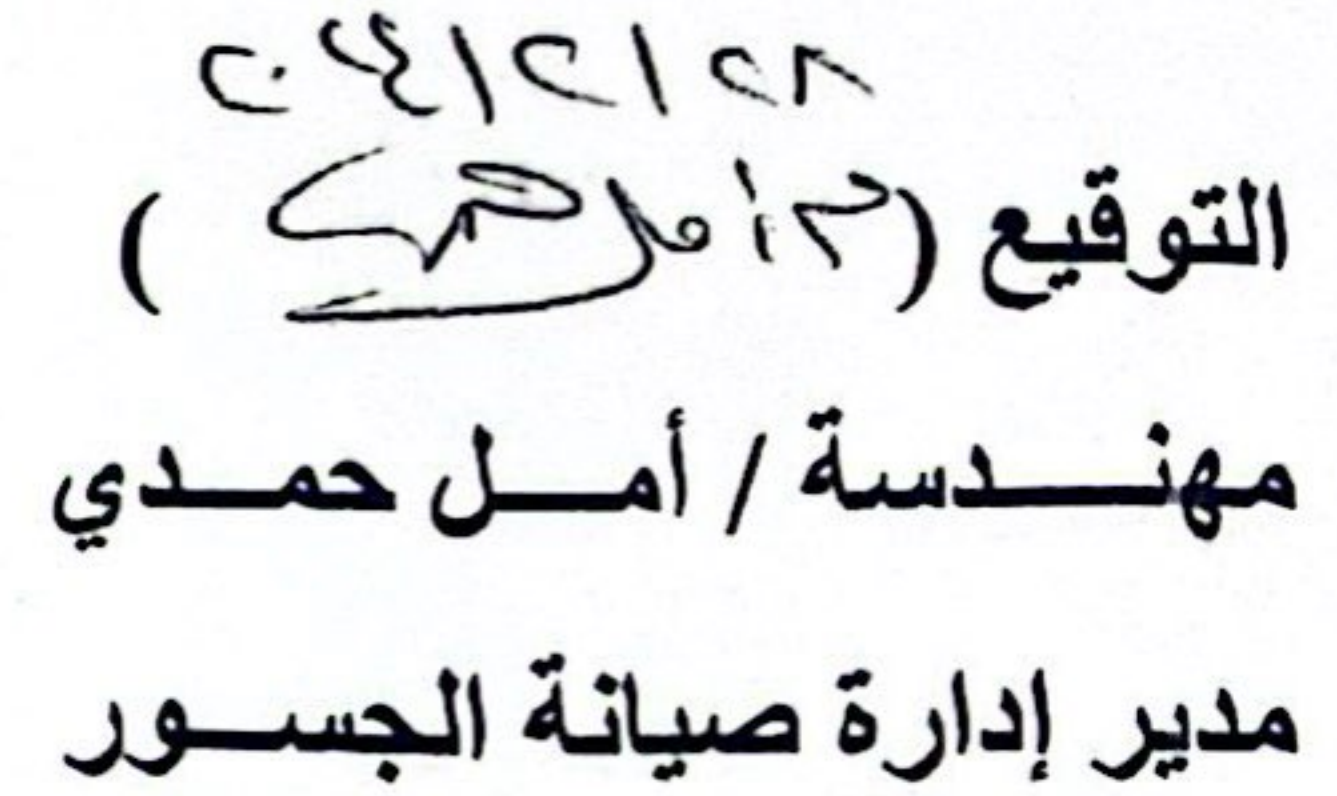 ٢٠٢٤/٢/٢٨
التوقيع (م. أمل )
مهندسة / أمل حمدي
مدير إدارة صيانة الجسور